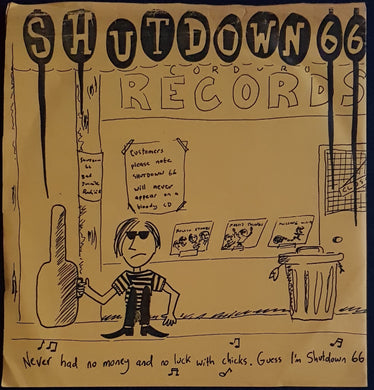 SHUTDOWN 66
CORDURO
RECORDS
Customers
please note
SHUTDOWN 66
will never
appear on a
bloody CD
Shutdown
66
Bad
Never had no money and no luck with chicks. Guess I'm Shutdown 66